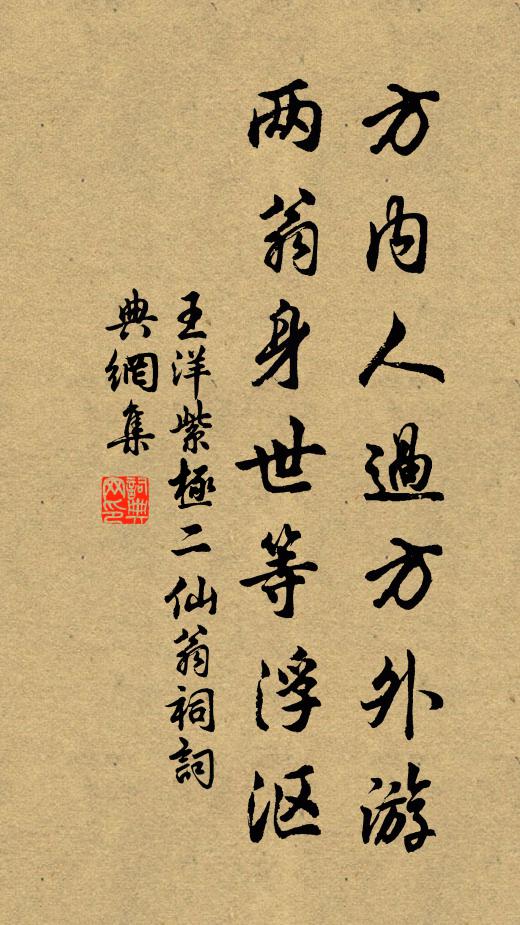 方内人過方外游
两翁身世等浮沤
王洋紫極二仙翁祠詞
典網集
詞典網印